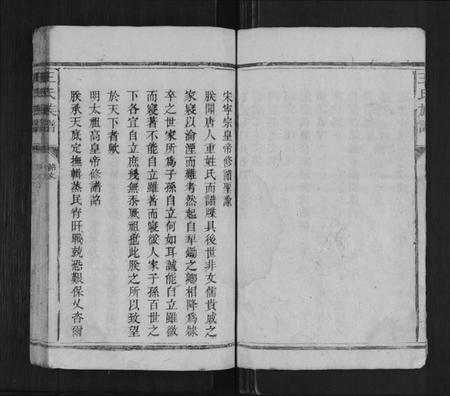 宋寧宗皇帝修譜聖諭
朕聞唐人重姓氏而譜牒具後世非文儒貴戚之
家寢以淪湮而難考然起自犂鋤之
相降爲
卒之世家所爲子孫自立何如耳誠能自立雖微
而寢著不能自立雖著而寢微人家子孫百世之
下各宜自立庶幾無忝厥祖
此朕之所以致望
於天下者歟
明太祖高皇帝修譜銘
朕承天庭定撫輯蒸民宵旰
兢恐艱保乂
爾
王氏族譜
王氏族譜